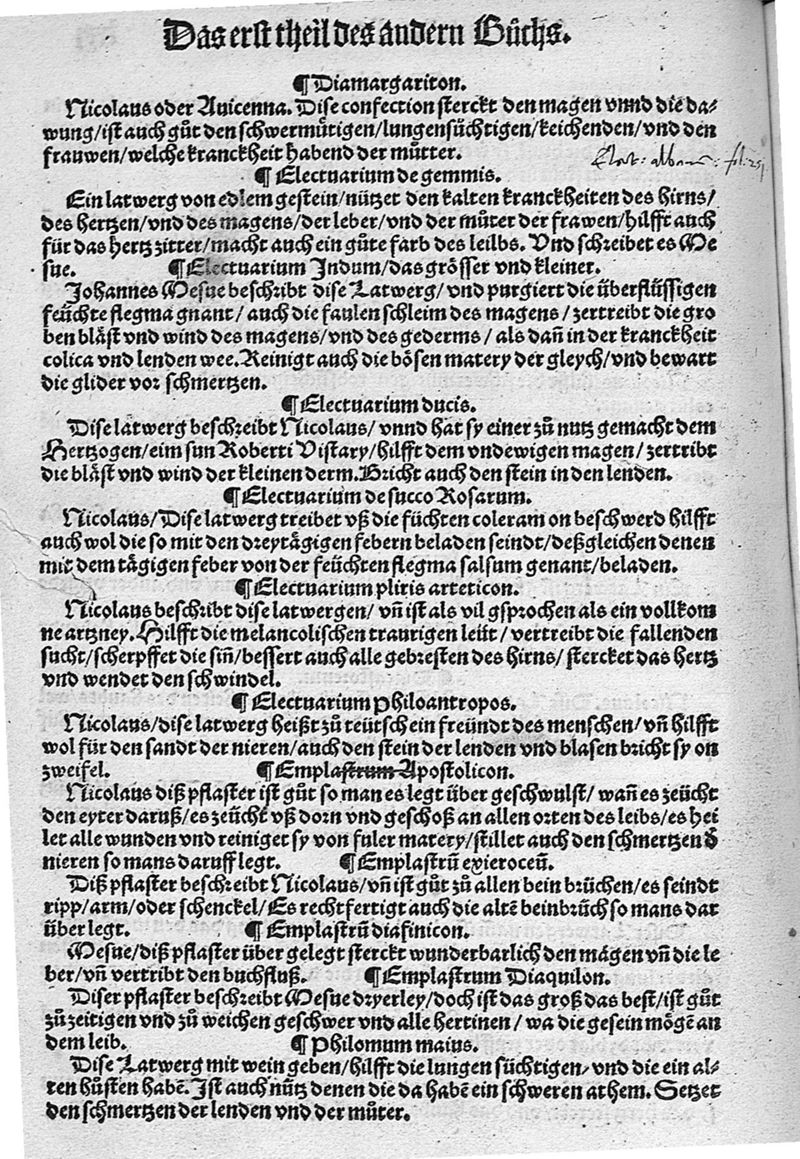 Das erst theil des andern Bůchs.
¶ Diamargariton.
Nicolaus oder Auicenna. Dise confection sterckt den magen vnnd die da-
wung/ist auch gůt den schwermůtigen/lungensüchtigen/keichenden/vnd den
frauwen/welche kranckheit habend der můtter.
¶ Electuarium de gemmis.
Ein latwerg von edlem gestein/nützet den kalten kranckheiten des hirns/
des hertzen/vnd des magens/der leber/vnd der můter der frawen/hilfft auch
für das hertz zitter/macht auch ein gůte farb des leilbs. Vnd schreibet es Me
sue. ¶ Electuarium Indum/das grösser vnd kleiner.
Johannes Mesue beschribt dise Latwerg/vnd purgiert die überflüssigen
feüchte flegma gnant/auch die faulen schleim des magens/zertreibt die gro
ben bläst vnd wind des magens/vnd des gederms/als dañ in der kranckheit
colica vnd lenden wee. Reinigt auch die bösen matery der gleych/vnd bewart
die glider vor schmertzen.
¶ Electuarium ducis.
Dise latwerg beschreibt Nicolaus/vnnd hat sy einer zů nutz gemacht dem
Hertzogen/eim sun Roberti Vistary/hilfft dem vndewigen magen/zertribt
die bläst vnd wind der kleinen derm. Bricht auch den stein in den lenden.
¶ Electuarium de succo Rosarum.
Nicolaus/Dise latwerg treibet vß die füchten coleram on beschwerd hilfft
auch wol die so mit den dreytägigen febern beladen seindt/deßgleichen denen
mit dem tägigen feber von der feüchten flegma salsum genant/beladen.
¶ Electuarium pliris arteticon.
Nicolaus beschribt dise latwergen/vñ ist als vil gsprochen als ein vollkom
ne artzney. Hilfft die melancolischen traurigen leüt/vertreibt die fallenden
sucht/scherpffet die siñ/bessert auch alle gebresten des hirns/stercket das hertz
vnd wendet den schwindel.
¶ Electuarium Philoantropos.
Nicolaus/dise latwerg heißt zů teütsch ein freündt des menschen/vñ hilfft
wol für den sandt der nieren/auch den stein der lenden vnd blasen bricht sy on
zweifel. ¶ Emplastrum Apostolicon.
Nicolaus diß pflaster ist gůt so man es legt über geschwulst/wañ es zeücht
den eyter daruß/es zeücht vß dorn vnd geschoß an allen orten des leibs/es hei
let alle wunden vnd reiniget sy von fuler matery/stillet auch den schmertzen d̄
nieren so mans daruff legt. ¶ Emplastrũ exieroceũ.
Diß pflaster beschreibt Nicolaus/vñ ist gůt zů allen bein brüchen/es seindt
ripp/arm/oder schenckel/Es rechtfertigt auch die altẽ beinbrüch so mans dar
über legt. ¶ Emplastrũ diafinicon.
Mesue/diß pflaster über gelegt sterckt wunderbarlich den mägen vñ die le
ber/vñ vertribt den buchfluß. ¶ Emplastrum Diaquilon.
Diser pflaster beschreibt Mesue dryerley/doch ist das groß das best/ist gůt
zů zeitigen vnd zů weichen geschwer vnd alle hertinen/wa die gesein mögẽ an
dem leib. ¶ Philomum maius.
Dise Latwerg mit wein geben/hilfft die lungen süchtigen/vnd die ein al-
ten hůsten habẽ. Ist auch nütz denen die da habẽ ein schweren athem. Setzet
den schmertzen der lenden vnd der můter.